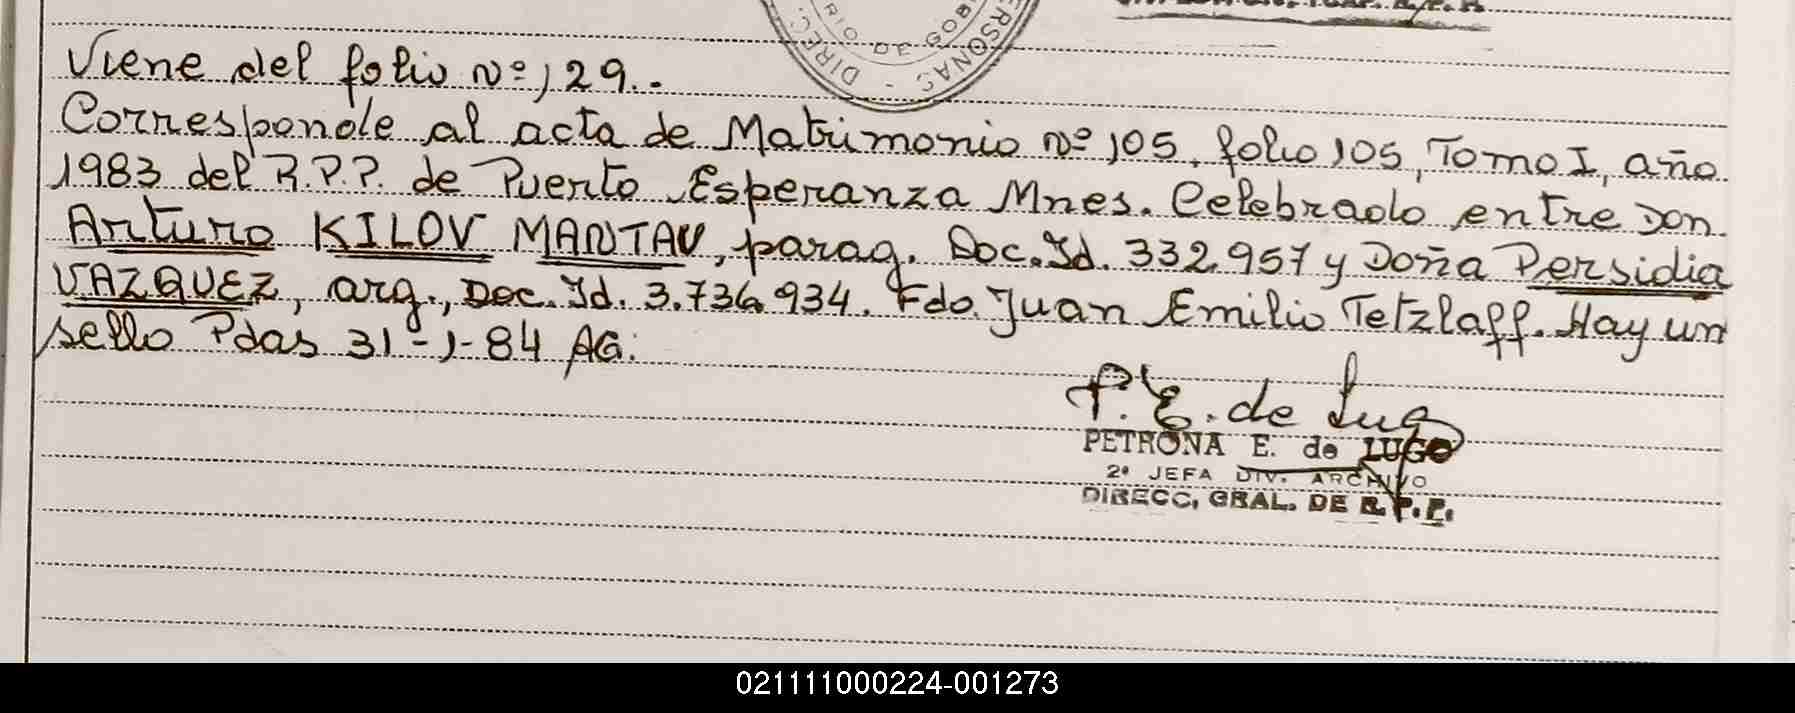 DIREC.
RSONAS -
IO DE GOB
Viene del folio Nº 129..
Corresponde al acta de Matrimonio Nº 105, folio 105, Tomo I, año
1983 del R.P.P. de Puerto Esperanza Mnes. Celebrado entre Don
Arturo KILOV MANTAU, parag. Doc. Id. 332.957 y Doña Persidia
VAZQUEZ, arg., Doc. Id. 3.734.934. Fdo. Juan Emilio Tetzlaff. Hay un
sello Pdas 31-1-84 AG.
P. E. de Lugo
PETRONA E. de LUGO
2ª JEFA DIV. ARCHIVO
DIRECC, GRAL. DE R.P.P.
021111000224-001273